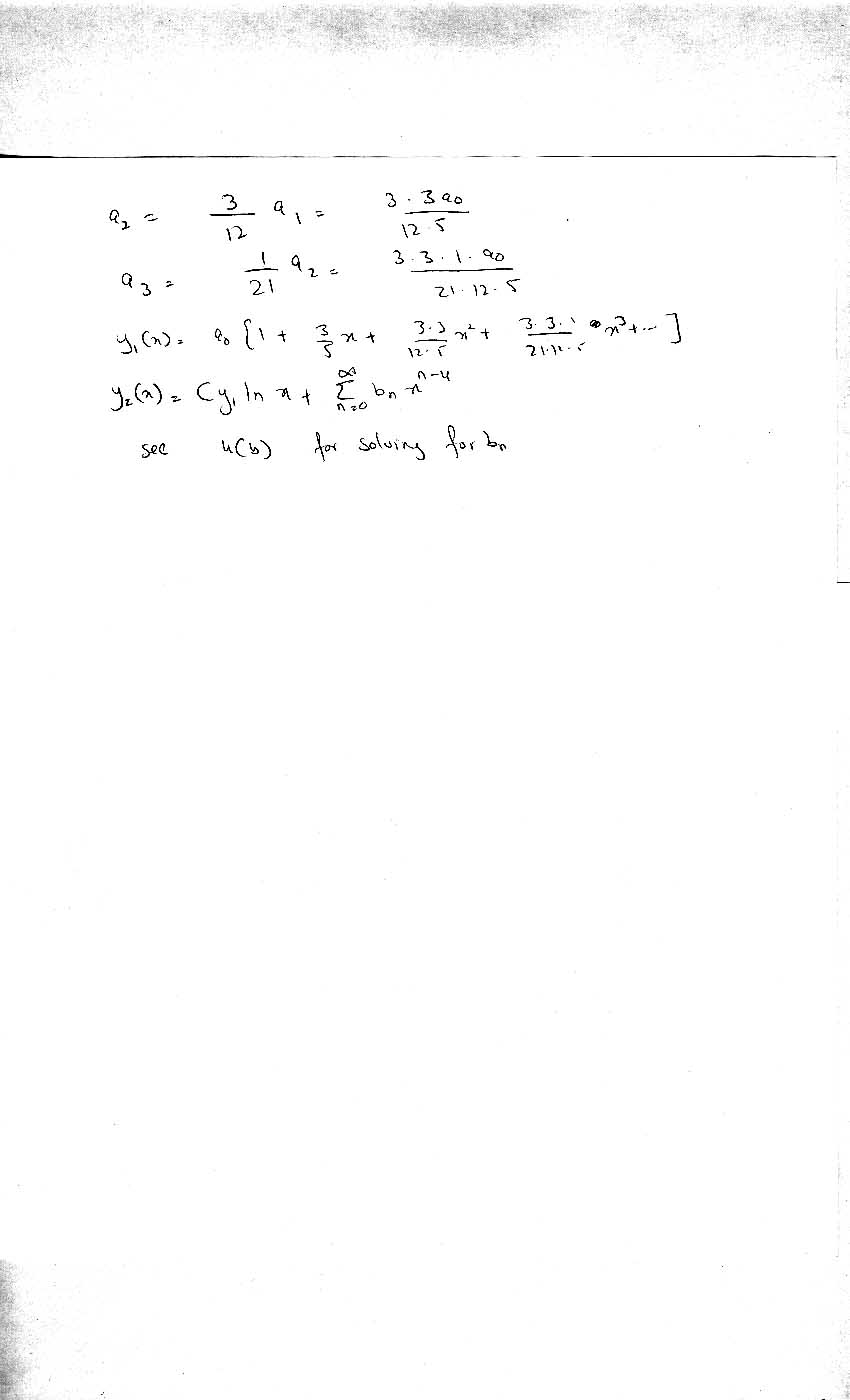 a₂ = 3/12 a₁ = 3 · 3a₀ / 12 · 5
a₃ = 1/21 a₂ = 3 · 3 · 1 · a₀ / 21 · 12 · 5
y₁(x) = a₀ [1 + 3/5 x + 3·3/12·5 x² + 3·3·1/21·12·5 x³ + ...]
y₂(x) = Cy₁ ln x + ∑_{n=0}^{∞} bₙ x^{n-4}
see 4(b) for solving for bₙ